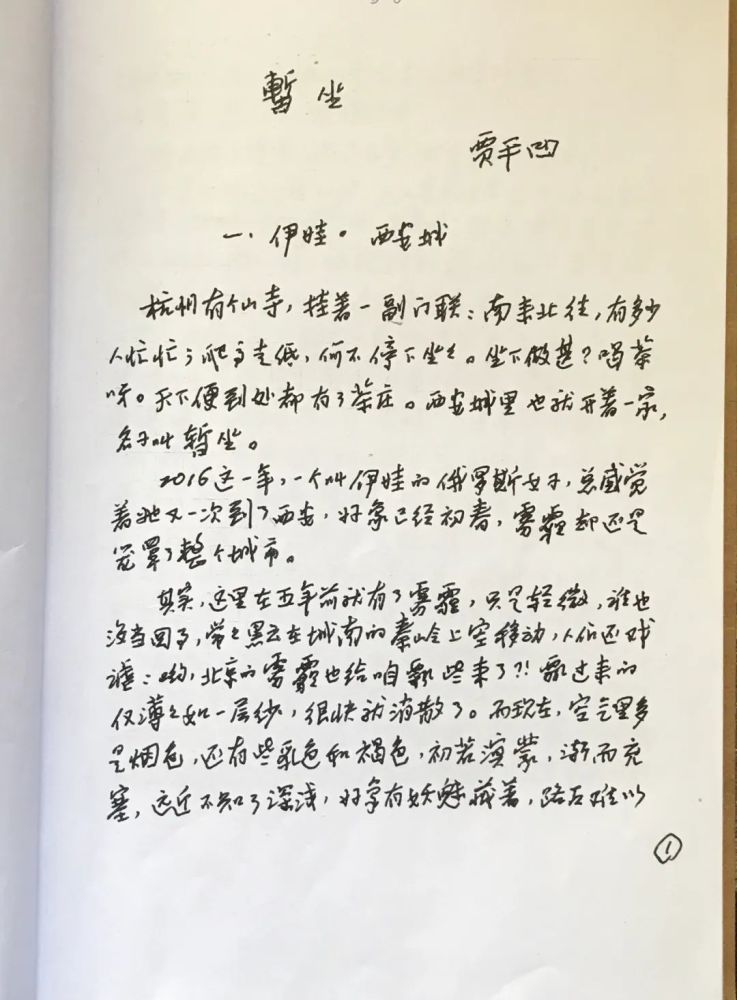 暫坐
贾平凹
一、伊娃·西安城
杭州有个山寺，挂着一副门联：南来北往，有多少
人忙忙；爬高走低，何不停下坐坐。坐下做甚？喝茶
呀。天下便到处都有了茶庄。西安城里也就开着一家，
名子叫暫坐。
2016这一年，一个叫伊娃的俄罗斯女子，总感觉
着她又一次到了西安，好象已经初春，雾霾却还是
笼罩了整个城市。
其实，这里在五年前就有了雾霾，只是轻微，谁也
没当回事，常々黑云在城南的秦岭上空移动，人们还戏
谑：哟，北京的雾霾也给咱飘些来了?! 飘过来的
仅薄々如一层纱，很快就消散了。而现在，空气里多
是烟色，还有些乳色和褐色，初若溟蒙，渐而充
塞，远近不知了深浅，好象有妖魅藏着，路石难以
1